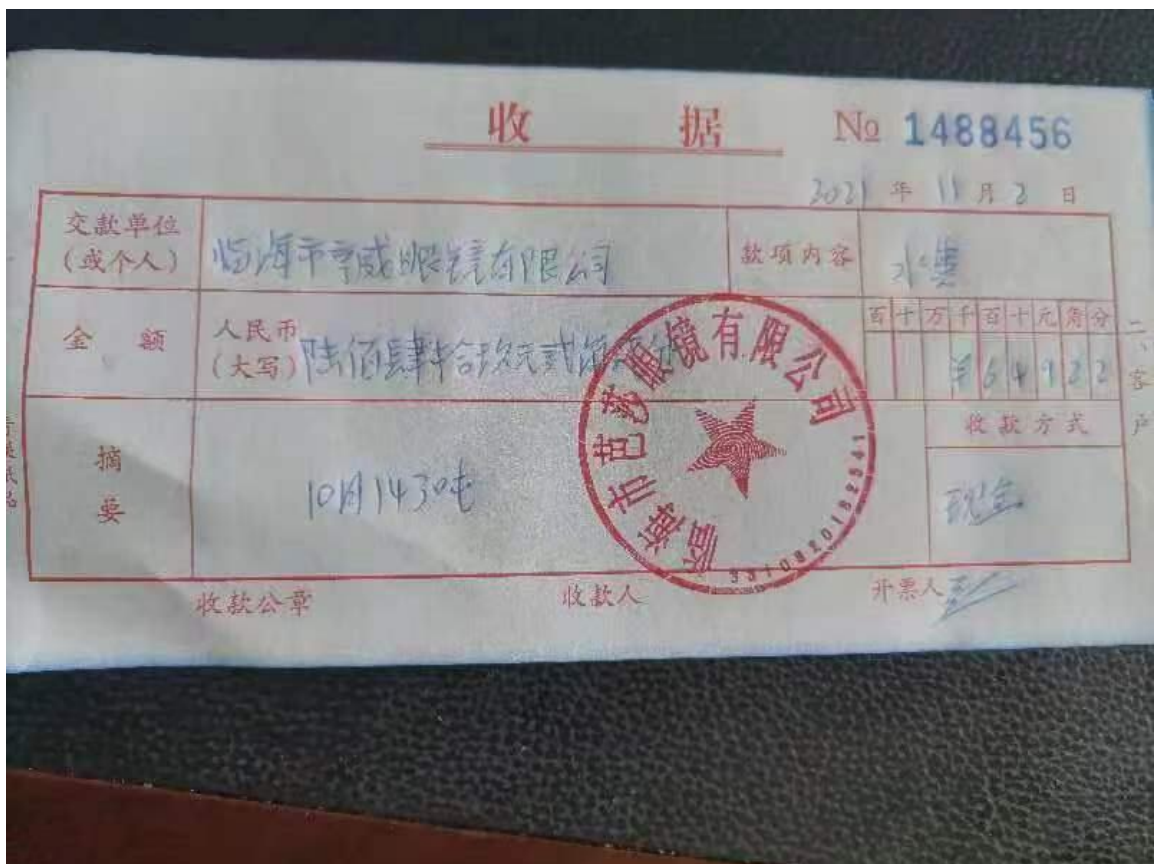 收 据 No 1488456
2021 年 11 月 2 日
交款单位
(或个人)
临海市亨威眼镜有限公司
款项内容
水费
金 额
人民币
(大写)
陆佰肆拾玖元贰角贰分
百 十 万 千 百 十 元 角 分
¥ 6 4 9 2 2
摘
要
10月1430吨
收款方式
现金
临海市芭莎眼镜有限公司
收款公章 收款人 开票人
二、客户